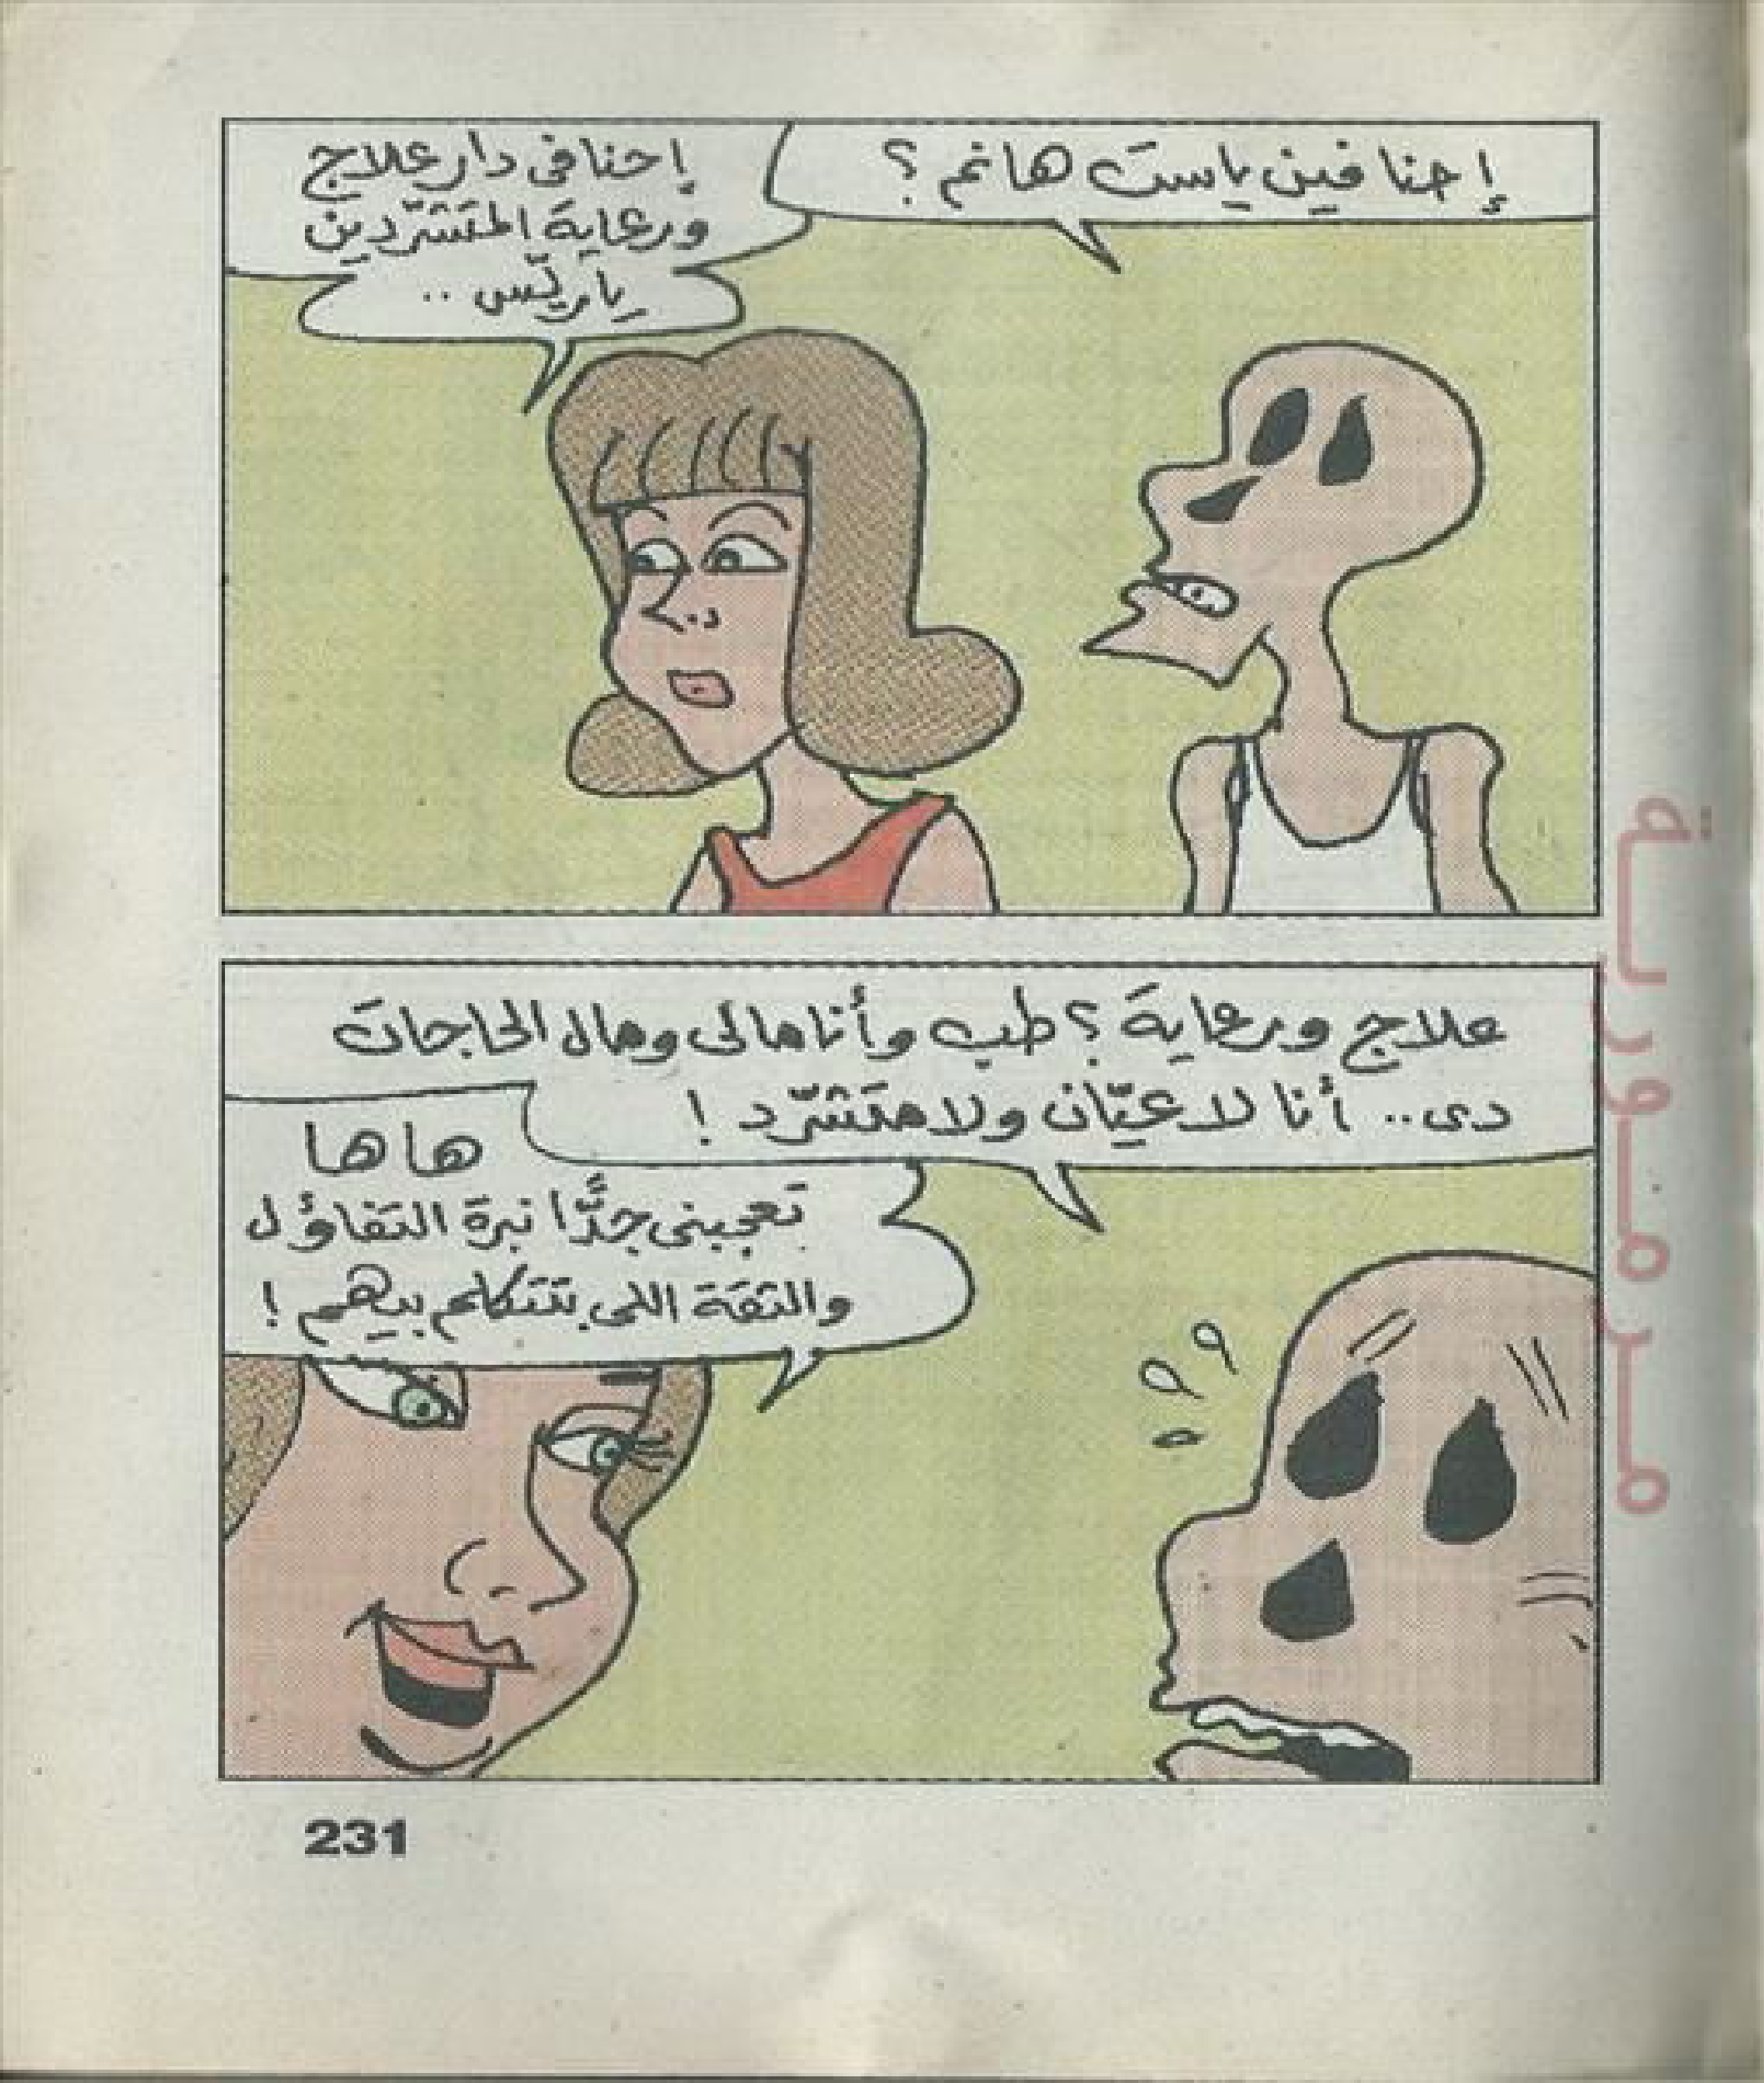 إحنا فين ياست هانم؟
إحنا فى دار علاج
ورعاية المتشرّدين
ياريّس ..
علاج ورعاية؟ طب وأنا مالى ومال الحاجات
دى.. أنا لا عيّان ولا متشرّد!
هاها
تعجبنى جدًّا نبرة التفاؤل
والثقة اللى بتتكلم بيهم!
231
مرمورية